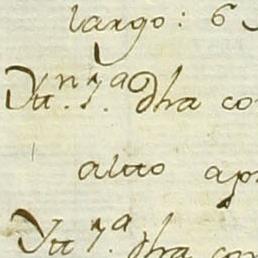 largo: 6
Ytt.ⁿ 1.ª dha co
alto ap
Ytt 1.ª dha con